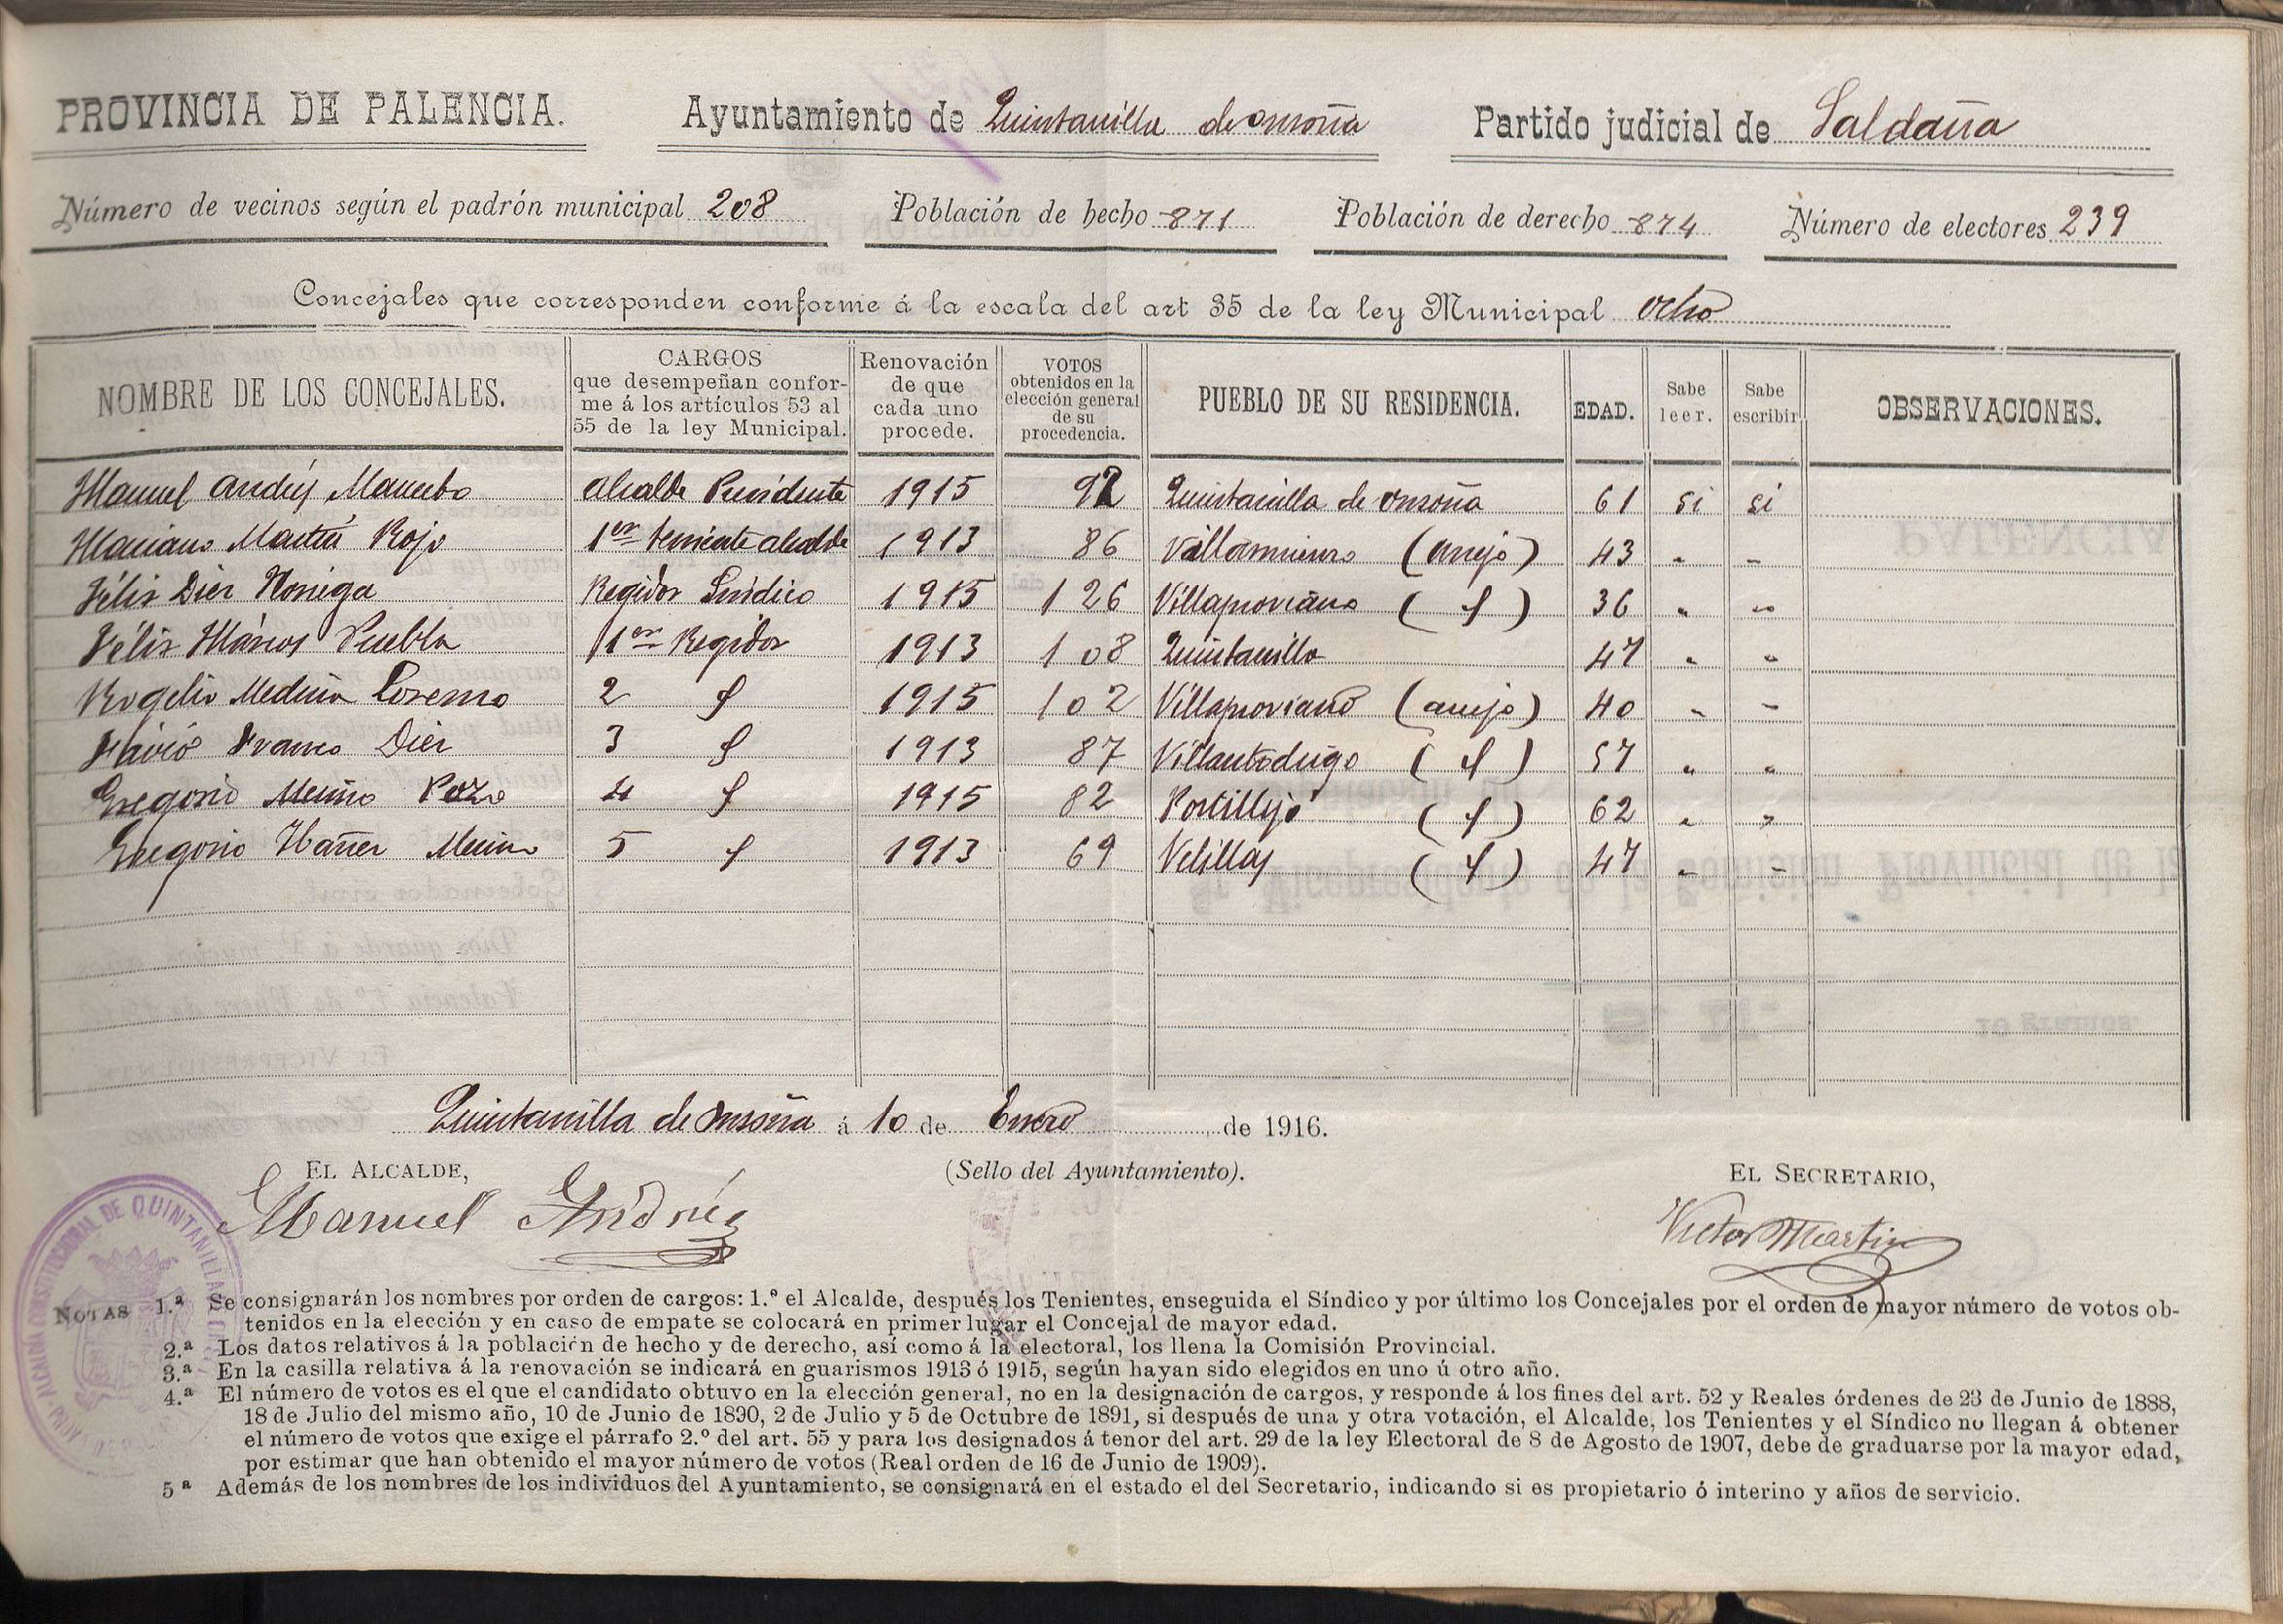 PROVINCIA DE PALENCIA. Ayuntamiento de Quintanilla de Onsoña Partido judicial de Saldaña
Número de vecinos según el padrón municipal 208 Población de hecho 871 Población de derecho 874 Número de electores 239
Concejales que corresponden conforme á la escala del art 35 de la ley Municipal ocho
NOMBRE DE LOS CONCEJALES. CARGOS que desempeñan conforme á los artículos 53 al 55 de la ley Municipal. Renovación de que cada uno procede. VOTOS obtenidos en la elección general de su procedencia. PUEBLO DE SU RESIDENCIA. EDAD. Sabe leer. Sabe escribir OBSERVACIONES.
Manuel Andrés Mancebo Alcalde Presidente 1915 92 Quintanilla de Onsoña 61 si si
Mariano Martín Rojo 1er teniente alcalde 1913 86 Villarmienzo (anejo) 43 " "
Félix Diez Noriega Regidor Síndico 1915 126 Villaproviano ( " ) 36 " "
Félix Márcos Puebla 1er Regidor 1913 108 Quintanilla 47 " "
Rogelio Medina Lorenzo 2 " 1915 102 Villaproviano (anejo) 40 " "
Franco Diez 3 " 1913 87 Villantodrigo ( " ) 57 " "
Gregorio Merino Pozo 4 " 1915 82 Portillejo ( " ) 62 " "
Gregorio Ibañez Merino 5 " 1913 69 Velillas ( " ) 47 " "
Quintanilla de Onsoña á 10 de Enero de 1916.
EL ALCALDE, (Sello del Ayuntamiento). EL SECRETARIO,
Manuel Andrés Victor Martin
ALCALDÍA CONSTITUCIONAL DE QUINTANILLA
NOTAS 1.ª Se consignarán los nombres por orden de cargos: 1.º el Alcalde, después los Tenientes, enseguida el Síndico y por último los Concejales por el orden de mayor número de votos ob-
tenidos en la elección y en caso de empate se colocará en primer lugar el Concejal de mayor edad.
2.ª Los datos relativos á la población de hecho y de derecho, así como á la electoral, los llena la Comisión Provincial.
3.ª En la casilla relativa á la renovación se indicará en guarismos 1913 ó 1915, según hayan sido elegidos en uno ú otro año.
4.ª El número de votos es el que el candidato obtuvo en la elección general, no en la designación de cargos, y responde á los fines del art. 52 y Reales órdenes de 23 de Junio de 1888,
18 de Julio del mismo año, 10 de Junio de 1890, 2 de Julio y 5 de Octubre de 1891, si después de una y otra votación, el Alcalde, los Tenientes y el Síndico no llegan á obtener
el número de votos que exige el párrafo 2.º del art. 55 y para los designados á tenor del art. 29 de la ley Electoral de 8 de Agosto de 1907, debe de graduarse por la mayor edad,
por estimar que han obtenido el mayor número de votos (Real orden de 16 de Junio de 1909).
5ª Además de los nombres de los individuos del Ayuntamiento, se consignará en el estado el del Secretario, indicando si es propietario ó interino y años de servicio.